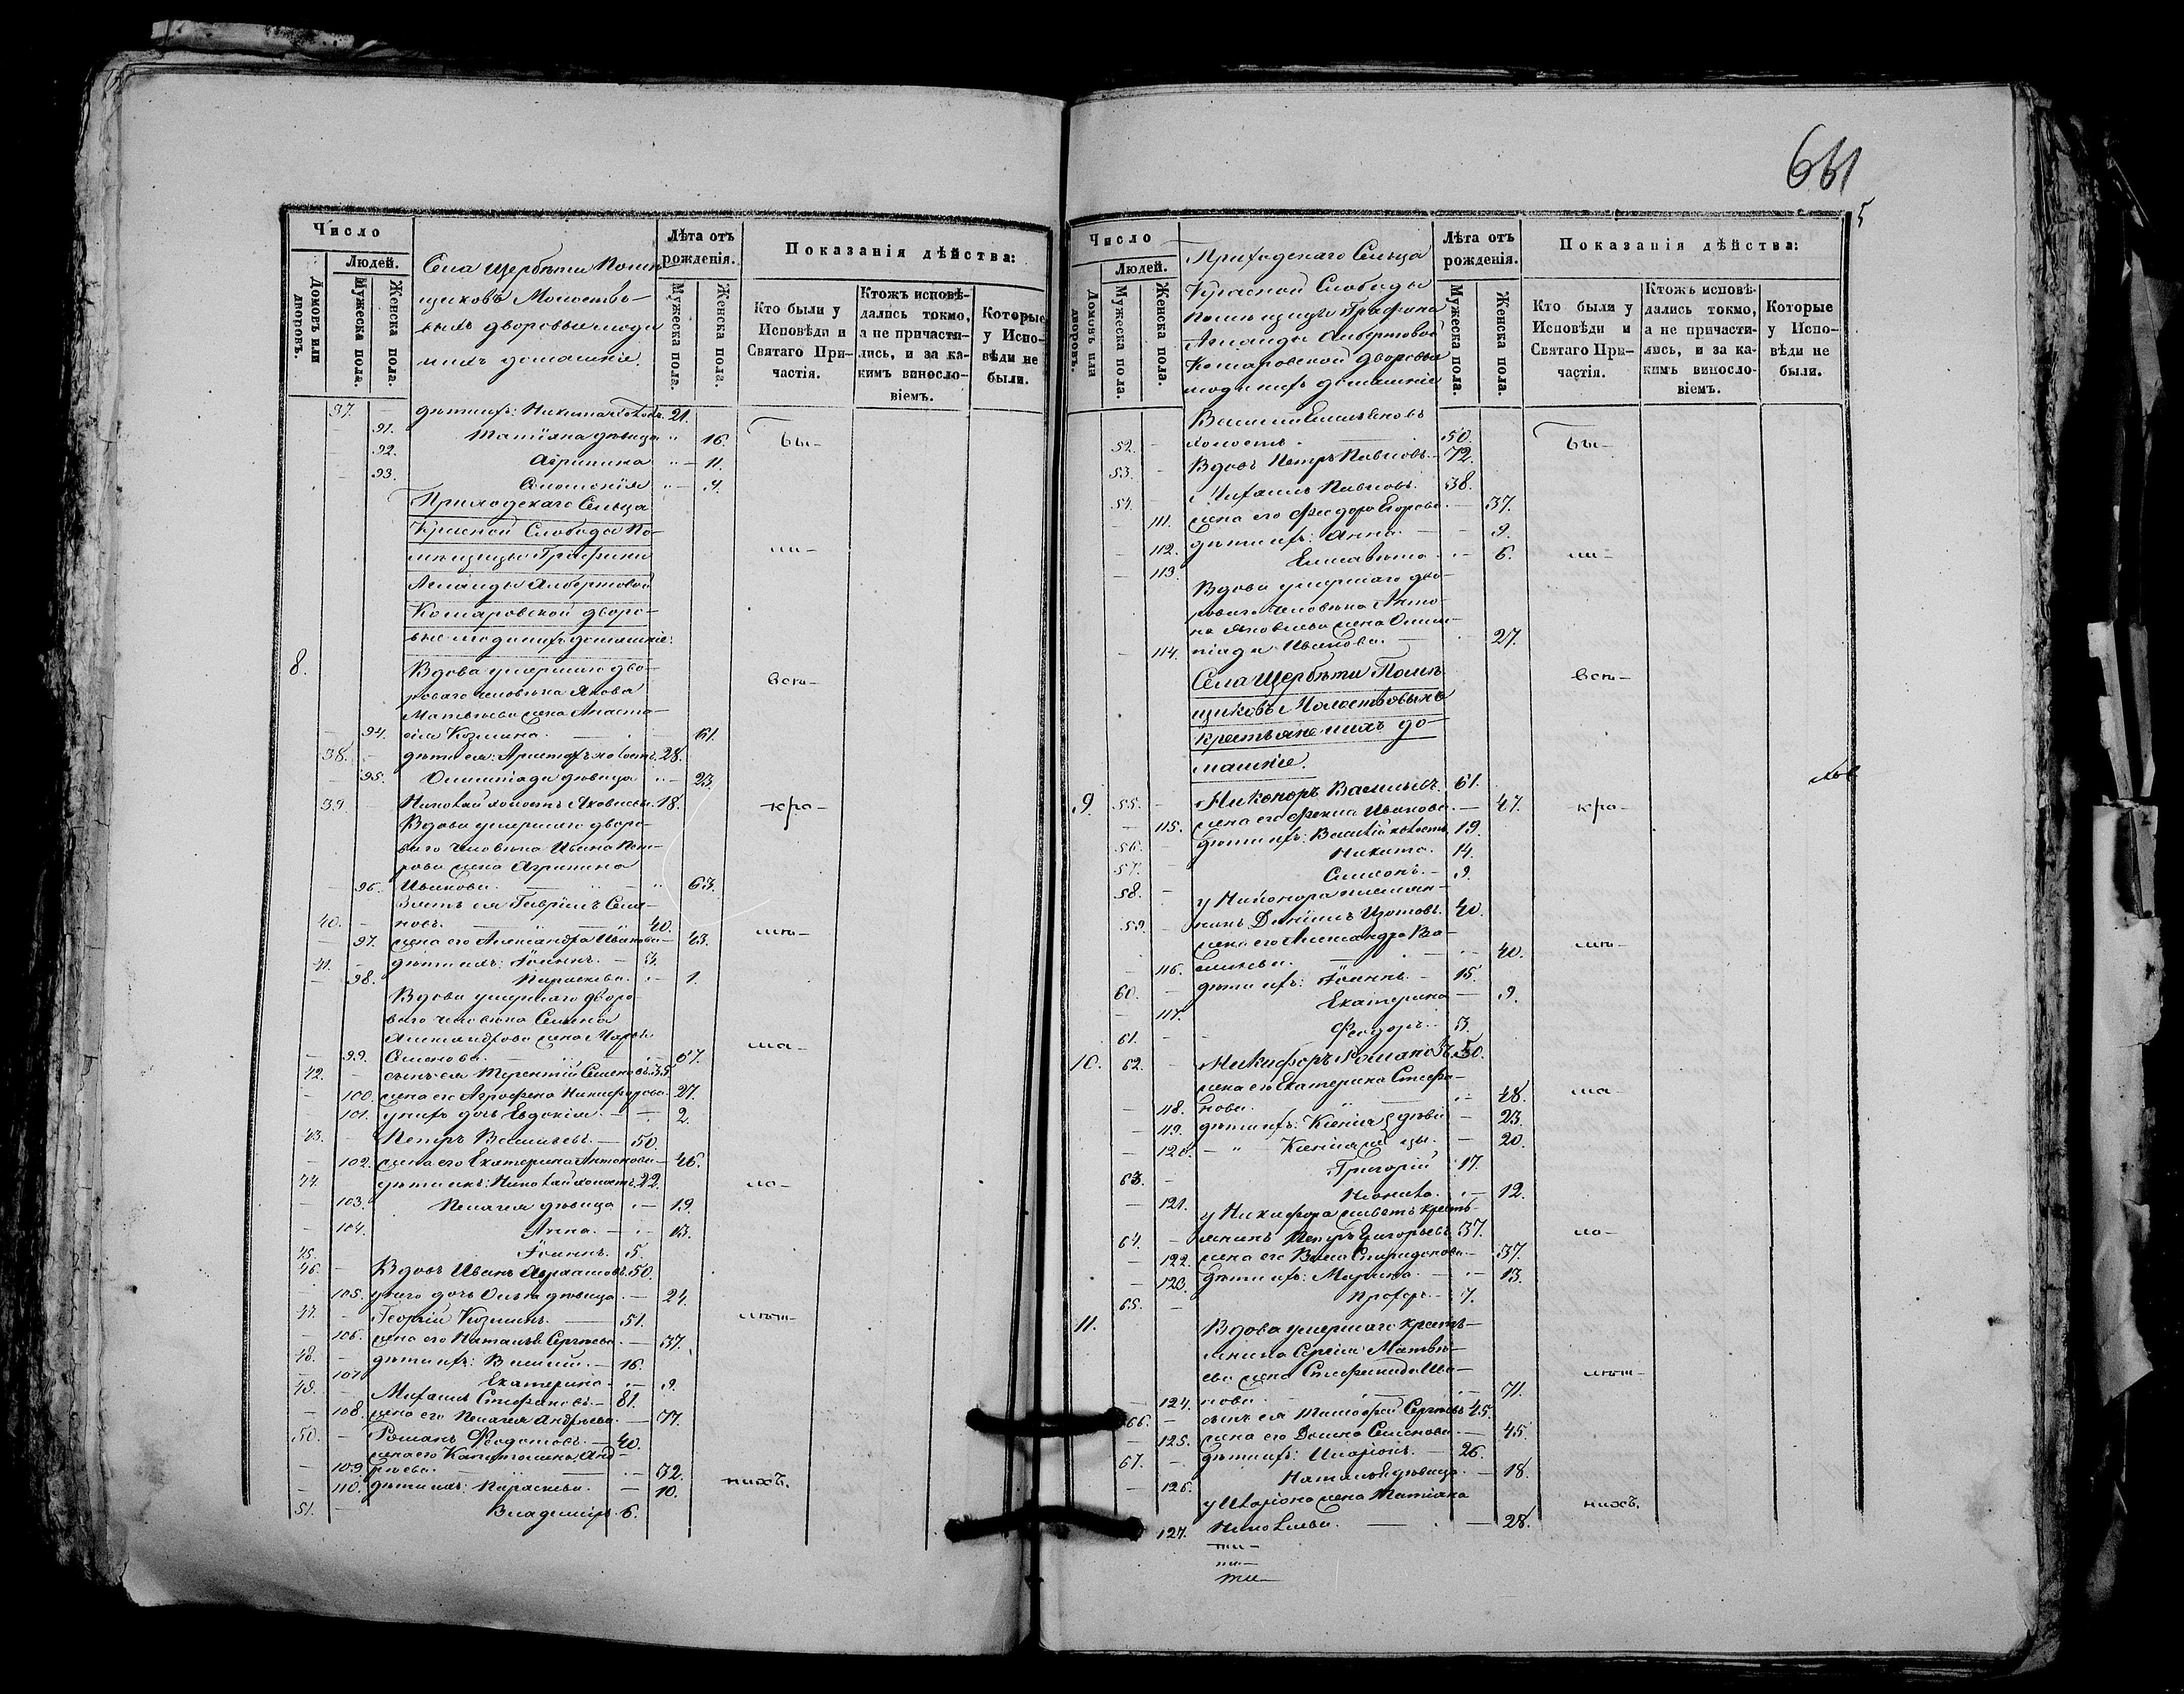 Число
Людей.
Домовъ или дворовъ.
Мужеска пола.
Женска пола.
Села Щербѣти Помѣ-
щиковъ Молоствo-
выхъ дворовые люди
ихъ домашніе.
Лѣта отъ
рожденія.
Мужеска пола.
Женска пола.
Показанія дѣйства:
Кто были у
Исповѣди и
Святаго При-
частія.
Ктожъ исповѣ-
дались токмо,
а не причасти-
лись, и за ка-
кимъ винословіемъ.
Которые
у Испо-
вѣди не
были.
37. дѣти ихъ: 21.
91. Татіяна дѣвица " 16. Бы-
92. Агрипина " — 11.
93. Соломонія " — 4.
Приходскаго Сельца
Красной Слободы По-
мѣщицы Графини ли-
Аманды Альбертовой
Комаровской дворо-
вые люди ихъ домашніе:
8. Вдова умершаго дво-
роваго человѣка Якова всѣ-
Матвѣева жена Анаста-
94. сія Козмина. 61.
38. дѣти ея: холостъ. 28.
95. Олимпіада дѣвица " — 23.
39. Николай холостъ Яковлевъ. 18. кро-
Вдова умершаго дворо-
ваго человѣка Ивана Пет-
рова жена Агрипина
96. Иванова. 63.
Зять ея Гавріилъ Семе-
40. новъ. 40.
97. жена его Александра Иванова 43. мѣ-
41. дѣти ихъ: Іоаннъ. — 3.
98. Параскева. 1.
Вдова умершаго дворо-
ваго человѣка Семена
Александрова жена Марѳа
99. Семенова. 67. ма-
42. сынъ ея Терентій Семеновъ. 35
100. жена его Агрофена Никифорова. 27.
101. у нихъ дочь Евдокія. 2.
43. Петръ Васильевъ. — 50.
102. жена его Екатерина Антонова — 46.
44. дѣти ихъ: Николай холостъ. 22. ло-
103. Пелагея дѣвица — 19.
104. Анна. — 13.
45. Іоаннъ. 5.
46. Вдовъ Иванъ 50.
105. у него дочь Ольга дѣвица. — 24.
47. Георгій Козминъ. 51. лѣт-
106. жена его Наталья Сергѣева. — 37.
48. дѣти ихъ: Василій. — 16.
107. Екатерина. 9.
49. Михаилъ Стефановъ. — 81.
108. жена его Пелагея Андреева. — 77.
50. Романъ Ѳедотовъ. — 40.
жена его Капитолина Анд-
109. реева. 32. нихъ.
110. дѣти ихъ: Параскева. 10.
51. Владиміръ. 6.
661
5
Число
Людей.
Домовъ или дворовъ.
Мужеска пола.
Женска пола.
Приходскаго Сельца
Красной Слободы
Помѣщицы Графини
Аманды Альбертовой
Комаровской дворовые
люди ихъ домашніе
Лѣта отъ
рожденія.
Мужеска пола.
Женска пола.
Показанія дѣйства:
Кто были у
Исповѣди и
Святаго При-
частія.
Ктожъ исповѣ-
дались токмо,
а не причасти-
лись, и за ка-
кимъ винословіемъ.
Которые
у Испо-
вѣди не
были.
Василій Емельяновъ
52. холостъ. 50. Бы-
53. Вдовъ Петръ Павловъ. 72.
54. Михаилъ Павловъ. 38.
111. жена его Ѳеодора Егорова. — 37.
112. дѣти ихъ: Анна. 9.
113. Елисавета. 6. ли-
Вдова умершаго дво-
роваго человѣка Анто-
на Яковлева жена Олим-
114. піада Иванова. 27.
Села Щербѣти Помѣ- всѣ-
щиковъ Молоствовыхъ
крестьяне ихъ до-
машніе.
9. 55. Никоноръ Васильевъ. 61.
115. жена его Ѳекла Иванова. — 47. кро-
56. дѣти ихъ: Василій холостъ. 19.
57. Никита. 14.
58. Симеонъ. — 9.
у Никонора племян-
59. никъ Даніилъ Изотовъ. 40.
жена его Александра Ва-
116. сильева. 40. мѣ-
60. дѣти ихъ: Іоаннъ. — 15.
117. Екатерина — 9.
61. Ѳеодоръ. 3.
10. 62. Никифоръ Романовъ. 50.
жена его Екатерина Стефа-
118. нова. 48. ма-
119. дѣти ихъ: Ксенія дѣви- 23.
120. " Ксенія цы. — 20.
63. Григорій 17.
121. 12.
у Никифора живетъ кресть-
64. янинъ Петръ Григорьевъ. 37. ло-
122. жена его Васса Спиридонова. — 37.
123. дѣти ихъ: Марина. 13.
65. Прохоръ. 7.
11. Вдова умершаго кресть-
янина Сергія Матвѣ-
ева жена Стефанида Ива- лѣт-
124. нова. 71.
66. сынъ ея Тимоѳей Сергѣевъ 45.
125. жена его Домна Семенова. — 45.
67. дѣти ихъ: Иларіонъ. — 26.
126. Наталья дѣвица. — 18.
у Иларіона жена Татіана нихъ.
127. Николаева. 28.